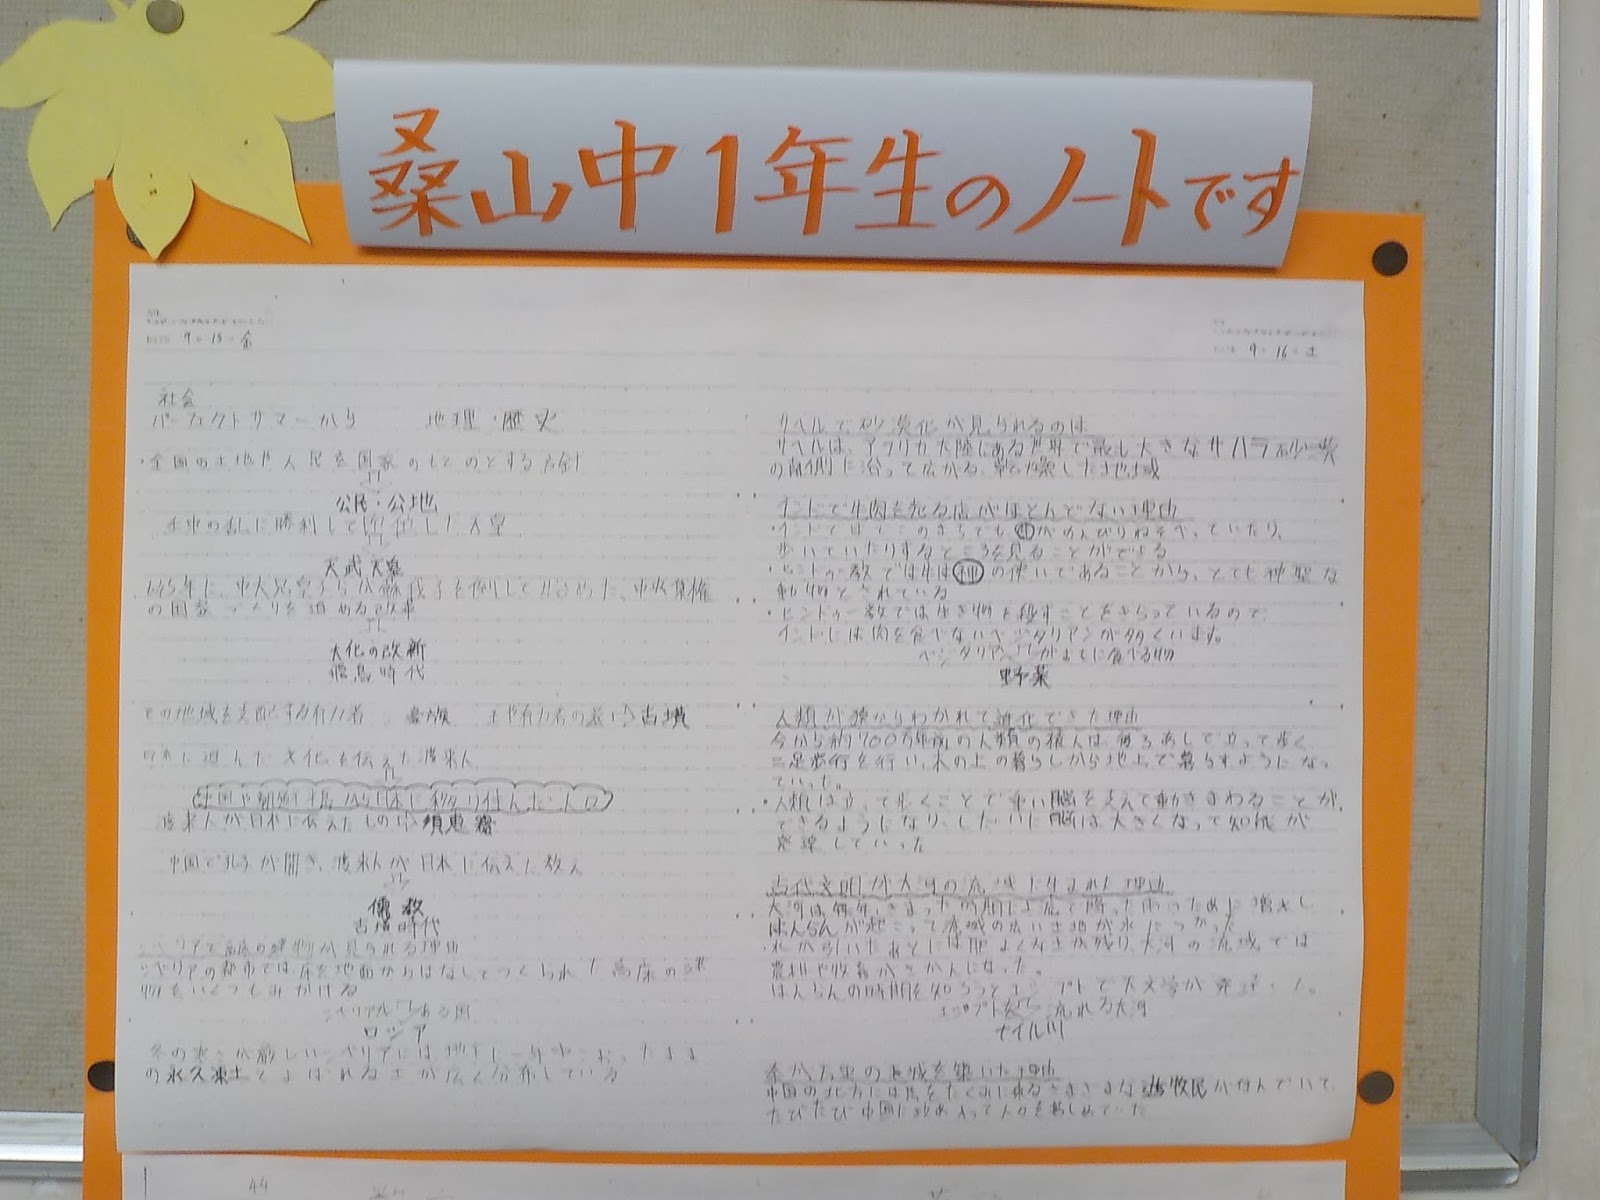 桑山中1年生のノートです
9 15 金
社会
パーフェクトサマーから 地理・歴史
・全国の土地や人民を国家のものとする方針
公民・公地
壬申の乱に勝利して即位した天皇
天武天皇
645年に、中大兄皇子らが蘇我氏を倒してはじめた、中央集権
の国家づくりを進める改革
大化の改新
飛鳥時代
その地域を支配する有力者 豪族 王や有力者の墓⇨古墳
日本に進んだ文化を伝えた渡来人
中国や朝鮮半島から日本に移り住んだ人々
渡来人が日本に伝えたもの⇨須恵器
中国で孔子が開き、渡来人が日本に伝えた教え
儒教
古墳時代
シベリアで高床の建物が見られる理由
シベリアの都市では床を地面からはなしてつくられた高床の建
物をいくつもみかける
シベリアがある国
ロシア
冬の寒さが厳しいシベリアには地下に一年中こおったまま
の永久凍土とよばれる土が広く分布している
9 16 土
サヘルで砂漠化が見られるのは
サヘルは、アフリカ大陸にある世界で最も大きなサハラ砂漠
の南側に沿って広がる、乾燥した地域
インドで牛肉を売る店がほとんどない理由
・インドではどこのまちでも牛がのんびりねそべっていたり、
歩いていたりするところを見ることができる
・ヒンドゥー教では牛は神の使いであることから、とても神聖な
動物とされている
・ヒンドゥー教では生き物を殺すことをきらっているので
インドには肉を食べないベジタリアンが多くいます。
ベジタリアンがおもに食べる物
野菜
人類が猿からわかれて進化できた理由
今から約700万年前の人類の猿人は、後ろあしで立って歩く
二足歩行を行い、木の上の暮らしから地上で暮らすようになっ
ていった。
・人類は立って歩くことで重い脳を支えて動きまわることが
できるようになり、しだいに脳は大きくなって知能が
発達していった
古代文明が大河の流域に生まれた理由
大河は毎年、きまった時期に上流で降った雨のために増水し
はんらんが起こって流域の広い土地が水につかった
・水が引いたあとには肥よくな土が残り、大河の流域では
農耕や牧畜がさかんになった。
はんらんの時期を知ろうとエジプトで天文学が発達した。
エジプトを流れる大河
ナイル川
秦が万里の長城を築いた理由
中国の北方には馬をたくみに乗るさまざまな遊牧民が住んでいて
たびたび中国に攻め入って人々を苦しめていた
44